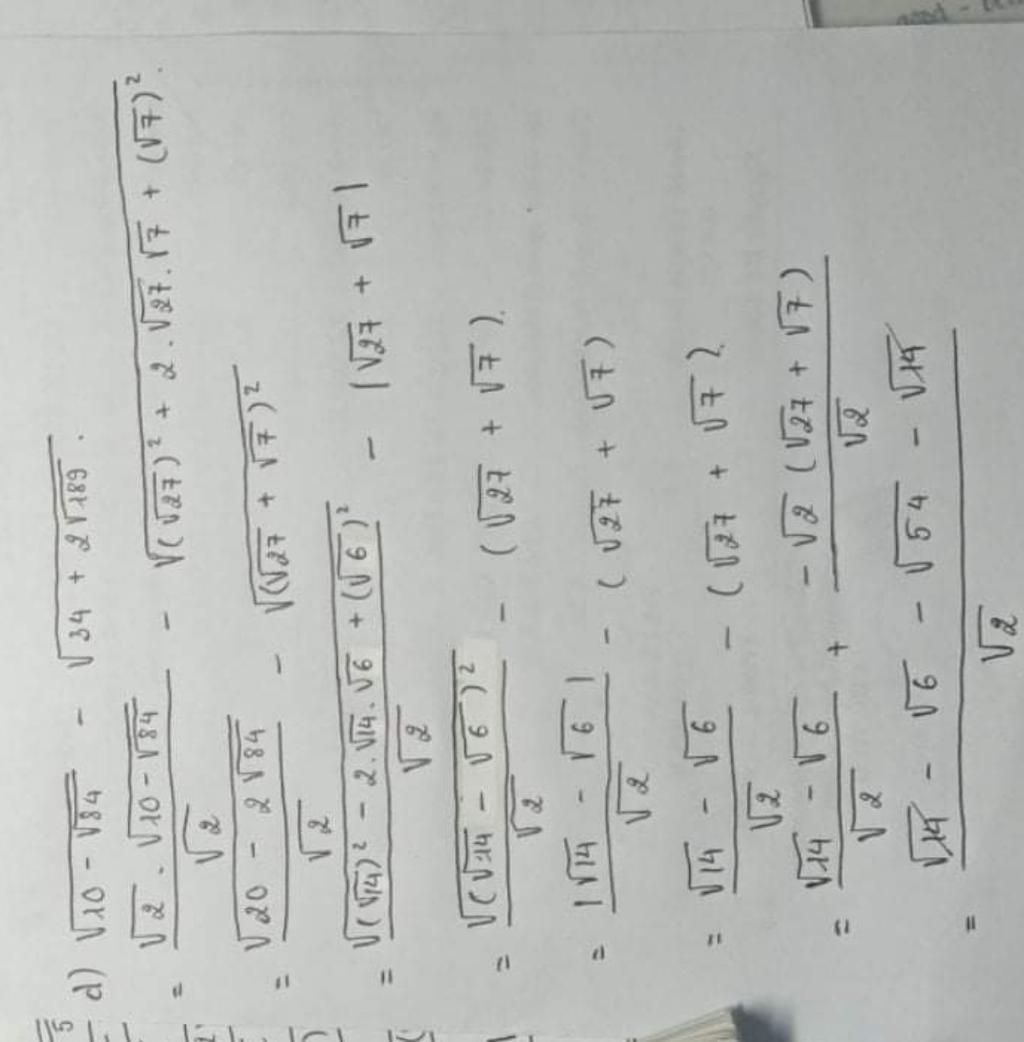 d) √(10 - √84) - √(34 + 2√189).
= (√2 . √(10 - √84))/√2 - √((√27)² + 2.√27.√7 + (√7)²).
= √(20 - 2√84)/√2 - √((√27 + √7)²)
= √((√14)² - 2.√14.√6 + (√6)²)/√2 - |√27 + √7|
= √((√14 - √6)²)/√2 - (√27 + √7).
= |√14 - √6|/√2 - (√27 + √7)
= (√14 - √6)/√2 - (√27 + √7).
= (√14 - √6)/√2 + (-√2(√27 + √7))/√2
= (√14 - √6 - √54 - √14)/√2